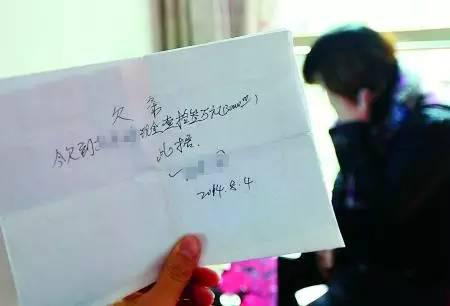 欠条
今欠到现金壹拾叁万元(130000元)
此据.
2014.8.4